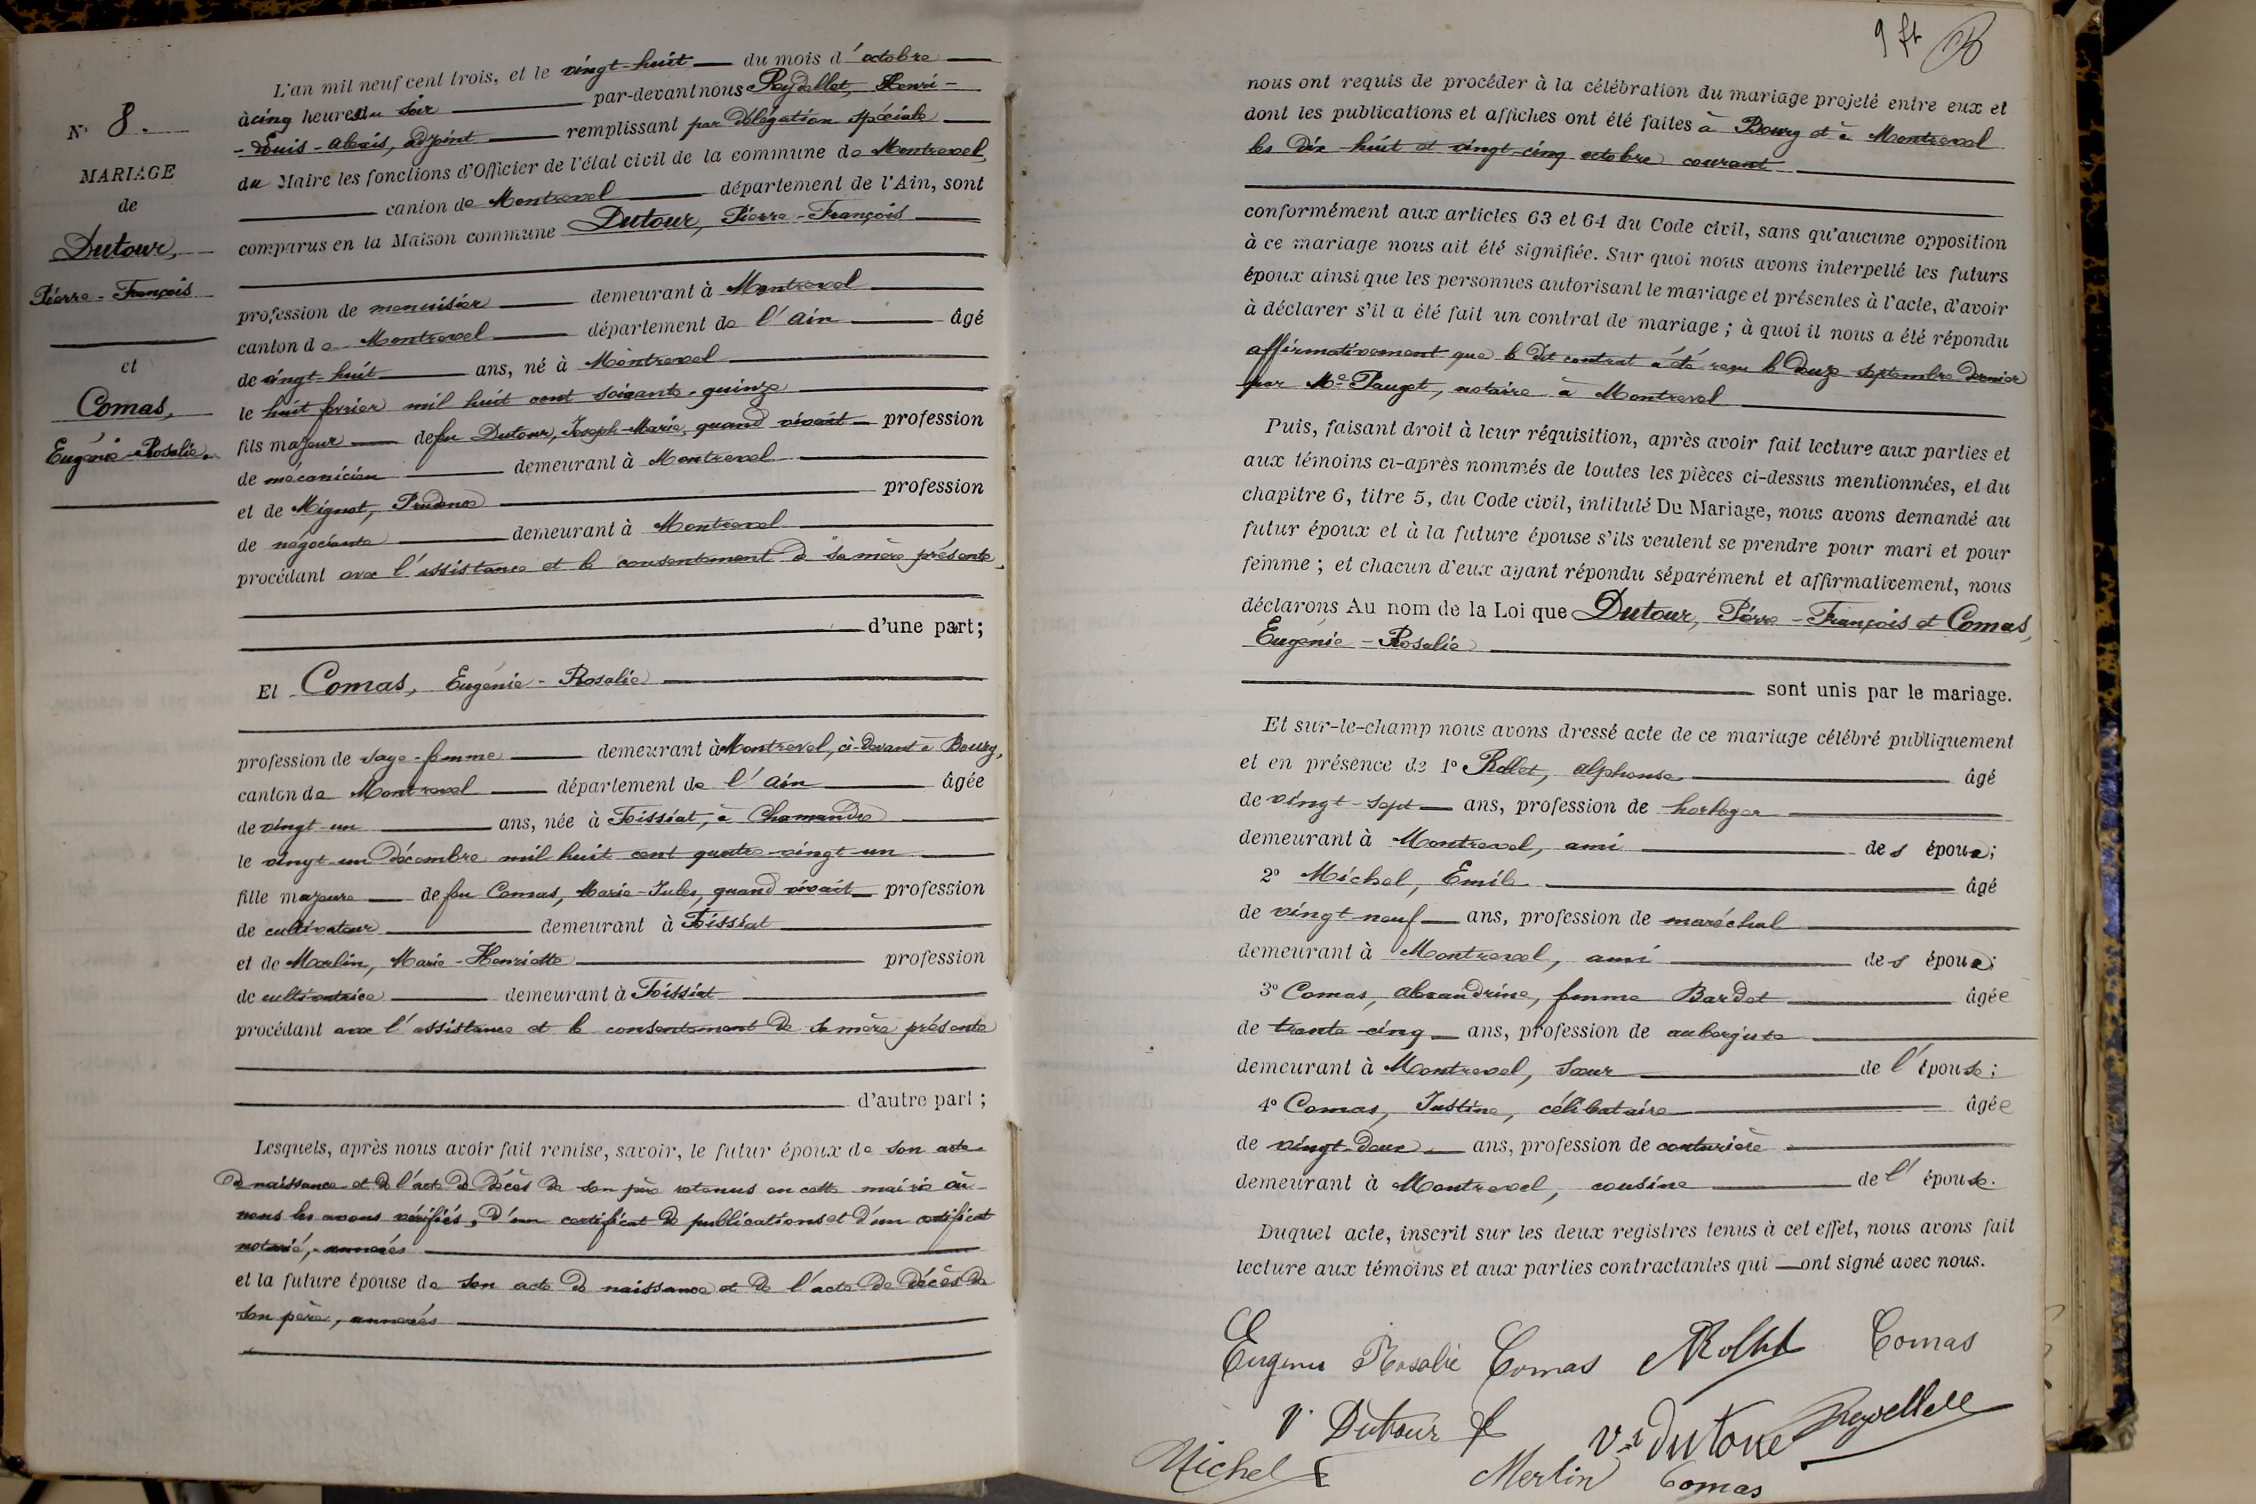 N° 8.
MARIAGE
de
Dutour,
Pierre-François
et
Comas,
Eugénie-Rosalie.
L'an mil neuf cent trois, et le vingt-huit du mois d'octobre
à cinq heures du soir par-devant nous Reydellet, Henri-
-Louis-Alexis, adjoint remplissant par délégation spéciale
du Maire les fonctions d'Officier de l'état civil de la commune de Montrevel,
canton de Montrevel département de l'Ain, sont
comparus en la Maison commune Dutour, Pierre-François
profession de menuisier demeurant à Montrevel
canton de Montrevel département de l'Ain âgé
de vingt-huit ans, né à Montrevel
le huit février mil huit cent soixante-quinze
fils majeur de feu Dutour, Joseph-Marie, quand vivait profession
de mécanicien demeurant à Montrevel
et de Mignot, Prudence profession
de négociante demeurant à Montrevel
procédant avec l'assistance et le consentement de sa mère présente,
d'une part;
Et Comas, Eugénie-Rosalie
profession de sage-femme demeurant à Montrevel, ci-devant à Bourg,
canton de Montrevel département de l'Ain âgée
de vingt-un ans, née à Foissiat, à Chamandre
le vingt-un décembre mil huit cent quatre-vingt-un
fille majeure de feu Comas, Marie-Jules, quand vivait profession
de cultivateur demeurant à Foissiat
et de Merlin, Marie-Henriette profession
de cultivatrice demeurant à Foissiat
procédant avec l'assistance et le consentement de sa mère présente
d'autre part;
Lesquels, après nous avoir fait remise, savoir, le futur époux de son acte
de naissance et de l'acte de décès de son père retenus en cette mairie où
nous les avons vérifiés, d'un certificat de publications et d'un certificat
notarié, annexés
et la future épouse de son acte de naissance et de l'acte de décès de
son père, annexés
9 ft
nous ont requis de procéder à la célébration du mariage projeté entre eux et
dont les publications et affiches ont été faites à Bourg et à Montrevel
les dix-huit et vingt-cinq octobre courant
conformément aux articles 63 et 64 du Code civil, sans qu'aucune opposition
à ce mariage nous ait été signifiée. Sur quoi nous avons interpellé les futurs
époux ainsi que les personnes autorisant le mariage et présentes à l'acte, d'avoir
à déclarer s'il a été fait un contrat de mariage; à quoi il nous a été répondu
affirmativement que le dit contrat a été reçu le douze septembre dernier
par Me Pauget, notaire à Montrevel
Puis, faisant droit à leur réquisition, après avoir fait lecture aux parties et
aux témoins ci-après nommés de toutes les pièces ci-dessus mentionnées, et du
chapitre 6, titre 5, du Code civil, intitulé Du Mariage, nous avons demandé au
futur époux et à la future épouse s'ils veulent se prendre pour mari et pour
femme; et chacun d'eux ayant répondu séparément et affirmativement, nous
déclarons Au nom de la Loi que Dutour, Pierre-François et Comas,
Eugénie-Rosalie
sont unis par le mariage.
Et sur-le-champ nous avons dressé acte de ce mariage célébré publiquement
et en présence de 1° Rollet, Alphonse âgé
de vingt-sept ans, profession de horloger
demeurant à Montrevel, ami des époux;
2° Michel, Emile âgé
de vingt-neuf ans, profession de maréchal
demeurant à Montrevel, ami des époux;
3° Comas, Alexandrine, femme Bardet âgée
de trente-cinq ans, profession de aubergiste
demeurant à Montrevel, sœur de l'épouse;
4° Comas, Justine, célibataire âgée
de vingt-deux ans, profession de couturière
demeurant à Montrevel, cousine de l'épouse.
Duquel acte, inscrit sur les deux registres tenus à cet effet, nous avons fait
lecture aux témoins et aux parties contractantes qui ont signé avec nous.
Eugénie Rosalie Comas ARollet Comas
Dutour Ve Dutour Reydellet
Michel E Merlin Comas